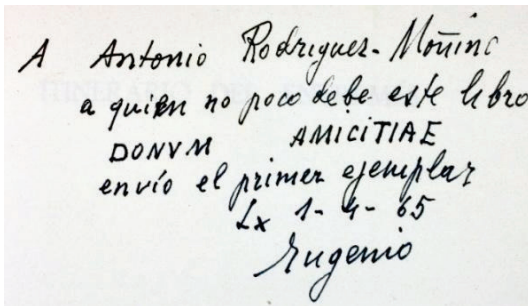 A Antonio Rodriguez-Moñino
a quien no poco debe este libro
DONVM AMICITIAE
envío el primer ejemplar
Lx 1-4-65
Eugenio